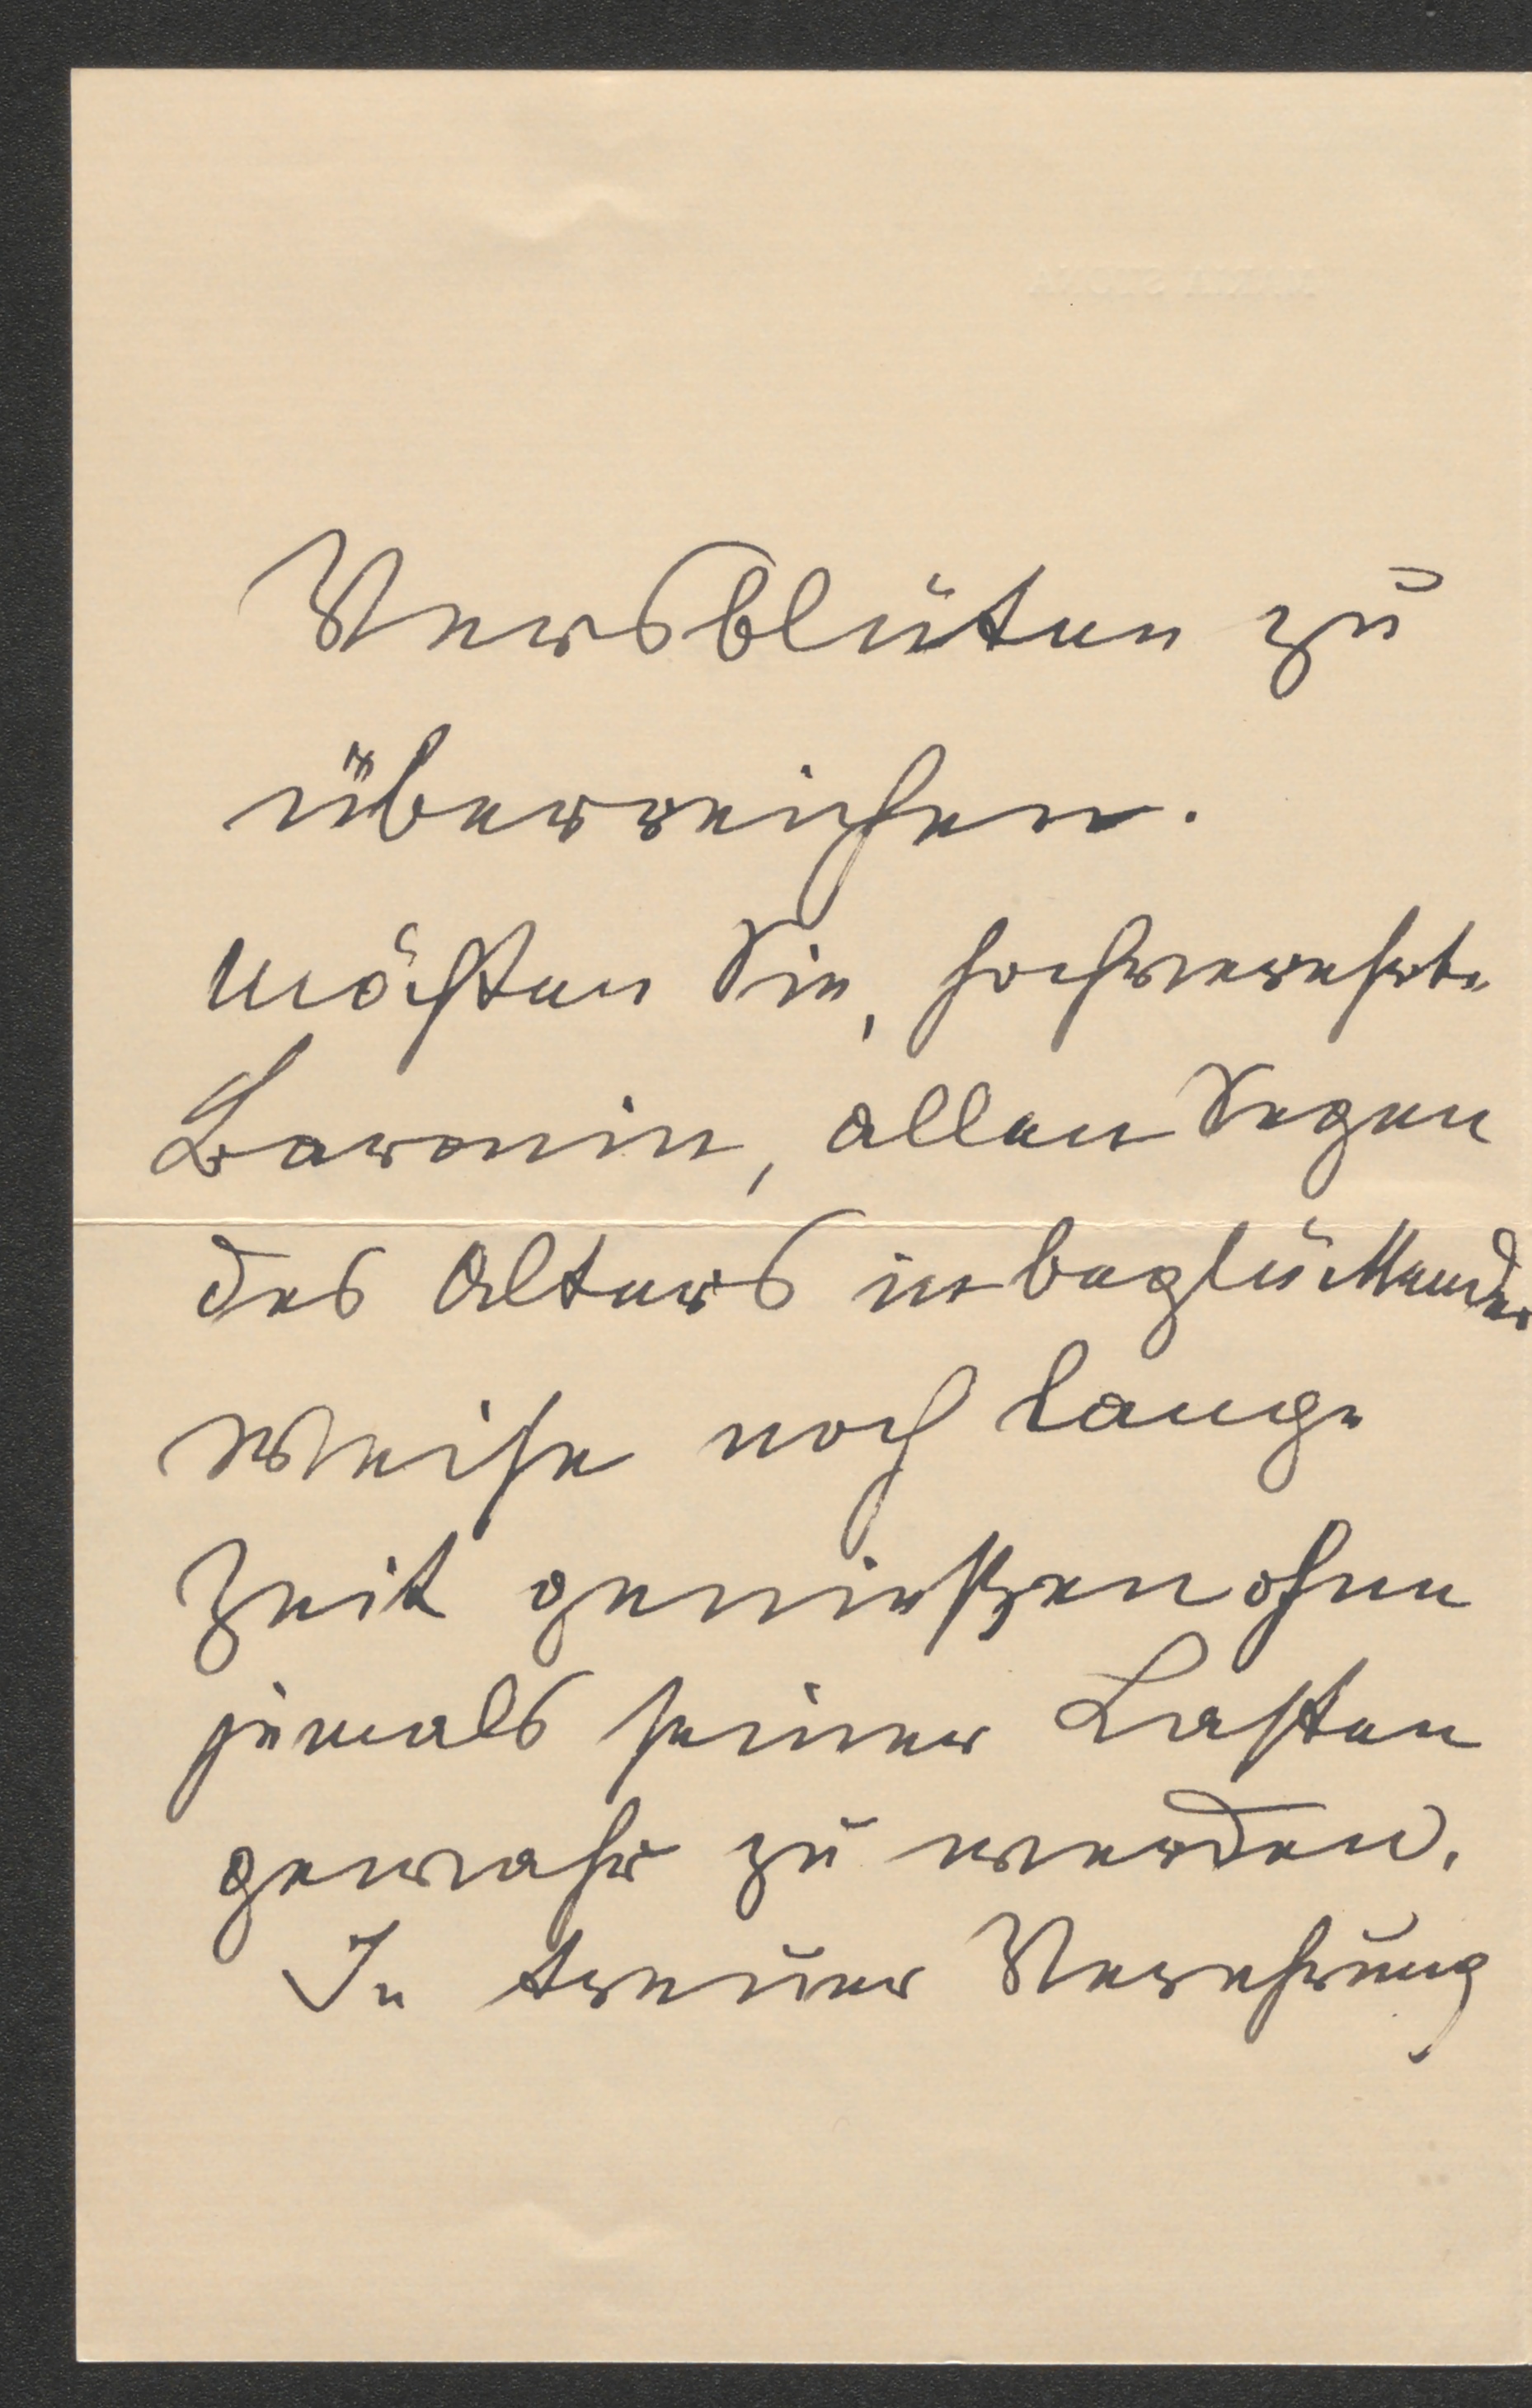 Versblüten zu
überreichen.
Möchten Sie, hochverehrte
Baronin, allen Segen
des Alters in beglückender
Weise noch lange
Zeit genießen ohne
jemals seiner Lasten
gewahr zu werden.
In treuer Verehrung